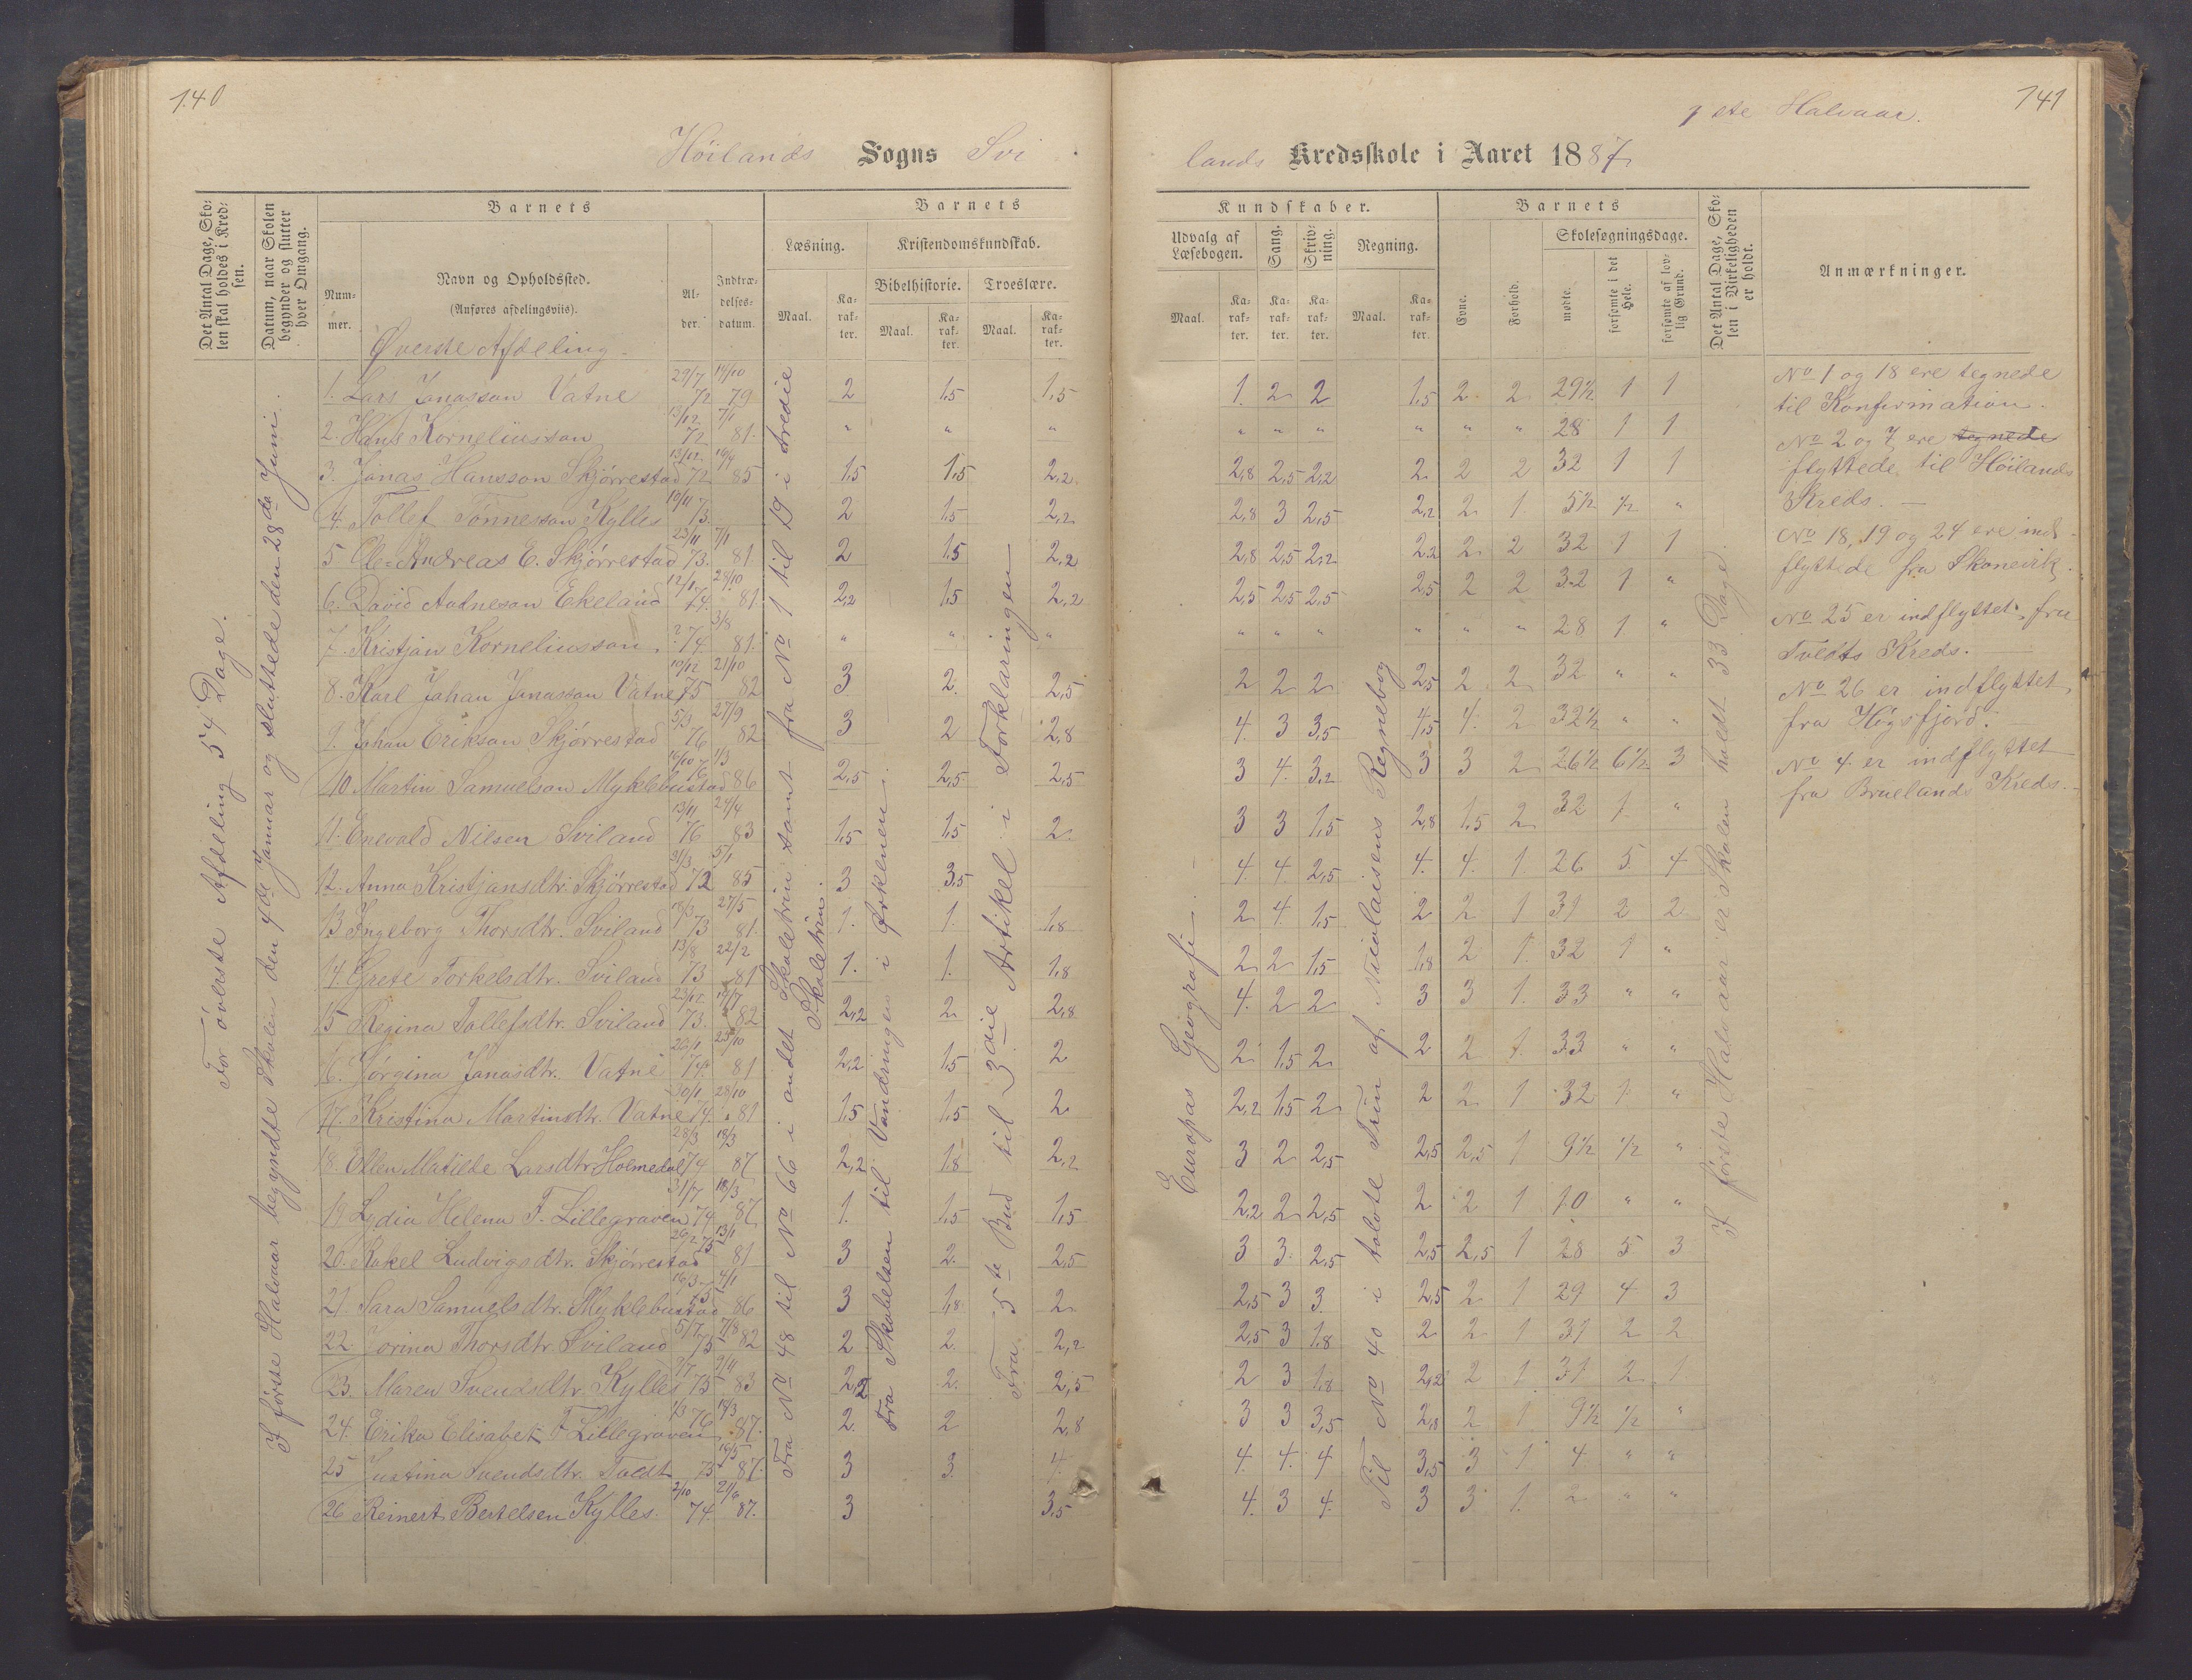 140
141
1ste Halvaar.
Höilands Sogns Svi
lands Kredsskole i Aaret 1887
Det Antal Dage, Sko-
len skal holdes i Kred-
sen.
Datum, naar Skolen
begynder og slutter
hver Omgang.
Barnets
Num-
mer.
Navn og Opholdssted.
(Anføres afdelingsviis).
Al-
der.
Indtræ-
delses-
datum.
Barnets
Læsning.
Maal.
Ka-
rak-
ter.
Kristendomskundskab.
Bibelhistorie.
Maal.
Ka-
rak-
ter.
Troeslære.
Maal.
Ka-
rak-
ter.
Kundskaber.
Udvalg af
Læsebogen.
Maal.
Ka-
rak-
ter.
Sang.
Ka-
rak-
ter.
Skriv-
ning.
Ka-
rak-
ter.
Regning.
Maal.
Ka-
rak-
ter.
Barnets
Evne.
Forhold.
Skolesøgningsdage.
mødte.
forsømte i det
Hele.
forsømte af lov-
lig Grund.
Det Antal Dage, Sko-
len i Virkeligheden
er holdt.
Anmærkninger.
For överste Afdeling 54 Dage.
I förste Halvaar begyndte Skolen den 4de Januar og sluttede den 28de Juni.
Øverste Afdeling.
Fra No 48 til No 66 i andet Skoletrin samt fra No 1 til 19 i tredie
Skoletrin.
Fra Skabelsen til Vandringen i Ørkenen.
Fra 5te Bud til 3die Artikel i Forklaringen
Europas Geografi.
Til No 40 i tolvte Trin af Nicolaisens Regnebog
I förste Halvaar er Skolen holdt 33 Dage.
1. Lars Jonasson Vatne 29/7 72 14/10 79 2 1,5 1,5 1. 2 2 1,5 2 2 29½ 1 1
2. Hans Korneliusson 13/12 72 7/1 81. " " " " " " " " " 28 1 1
3. Jonas Hansson Skjørrestad 13/12 72 16/4 85 1,5 1,5 2,2 2,8 2,5 2,2 2 2 2 32 1 1
4. Tollef Tönnesson Kylles 10/11 73. 2 1,5 2,2 2,8 3 2,5 2,2 2 1 5½ ½ "
5 Ole Andreas E. Skjørrestad 23/11 73. 7/1 81 2 1,5 2,2 2,8 2,5 2,2 2,2 2 2 32 1 1
6. David Aatneson Ekeland 12/1 74. 28/10 81 2,2 1,5 2,2 2,5 2,5 2,5 2,5 2 2 32 1 "
7. Kristjan Korneliusson ? 74. 3/8 81. " " " " " " " " " 28 1. "
8. Karl Johan Jonasson Vatne 10/12 75 21/10 82 3 2. 2,5 2 2 2 2,5 2 2 32 " "
9. Johan Erikson Skjørrestad 5/3 76 27/9 82 3 2 2,8 4. 3 3,5 4,5 4. 2 32½ " "
10 Martin Samuelson Myklebustad 16/10 76 1/3 86 2,5 2,5 2,5 3 4. 3,2 3 3 2 26½ 6½ 3
11. Enevald Nilsen Sviland 13/11 76 24/4 83 1,5 1,5 2. 3 3 1,5 2,8 1,5 2 32 1. "
12. Anna Kristjansdtr. Skjørrestad 31/3 72 5/1 85 3 3,5 4. 4 2,5 4. 4. 1. 26 5. 4
13 Ingeborg Thorsdtr. Sviland 18/3 73 27/5 81. 1. 1. 1,8 2 4. 1,5 2 2 1 31 2 2
14. Grete Torkelsdtr. Sviland 13/8 73 22/2 81 1. 1. 1,8 2 2 1,5 1,8 2 1. 32 1 "
15 Regina Tollefsdtr. Sviland 23/12 73. 19/7 82 2,2 2. 2,8 4. 2 2 3 3 1. 33 " "
16. Jörgina Jonasdtr. Vatne 20/1 74. 25/10 81 2,2 1,5 2 2 1,5 2 2 2 1. 33 " "
17. Kristina Martindtr. Vatne 30/1 74. 28/10 81 1,5 1,5 2 2,2 1,5 2 2 2 1 32 1. "
18 Ellen Matilde Larsdtr. Holmedal 28/3 74 18/3 87 2,2 1,8 2,2 3 2 2,5 2,5 2,5 1 9½ ½ "
19 Lydia Helena F. Lillegraven 31/7 74 18/3 87 1. 1,5 1,5 2,2 2 2,5 2 2 1 10 " "
20. Rakel Ludvigsdtr. Skjørrestad 26/2 75 13/1 81 3 2. 2,5 3 3. 2,5 2,5 2,5 1 28 5 3
21. Sara Samuelsdtr. Myklebustad 16/3 75 4/1 86 3 1,8 2 2,5 3 3. 2,5 2 1 29 4 3
22. Jorina Thorsdtr. Sviland 5/7 75 7/8 82 2 2. 2,2 2,5 3 1,8 2 2 1 31 2 2
23. Maren Svendsdtr. Kylles 7/7 75 2/4 83 2,2 2. 2,5 2 3 1,8 2,2 2 1. 31 2 1
24. Erika Elisabet F Lillegraven 1/3 76 18/3 87. 2. 2 2,8 3 3 3,5 2,8 2 1. 9½ ½ "
25 Justina Svendsdtr. Tvedt 75 16/5 87. 3 3. 4. 4. 4. 4 3,5 3 1 4. " "
26 Reinert Bertelsen Kylles. 2/10 74. 21/6 87. 3 3,5 4. 3 4. 3 3 1. 2 " "
No 1 og 18 ere tegnede
til Konfirmation.
No 2 og 7 ere tegnede
flyttede til Höilands
Kreds.
No 18, 19 og 24 ere ind-
flyttede fra Skonevik.
No 25 er indflyttet fra
Tveldts Kreds.
No 26 er indflyttet
fra Høgsfjord.
No 4 er indflyttet
fra Bruelands Kreds.